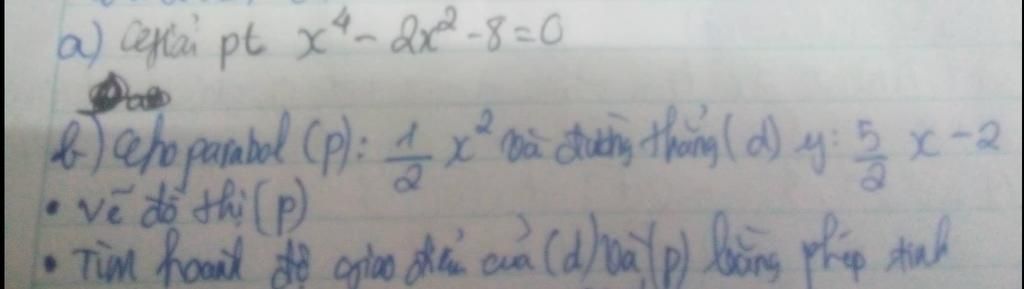 a) Giải pt x⁴ - 2x² - 8 = 0
b) Cho parabol (p): 1/2 x² và đường thẳng (d) y: 5/2 x - 2
• vẽ đồ thị (p)
• Tìm hoành độ giao điểm của (d) và (p) bằng phép tính